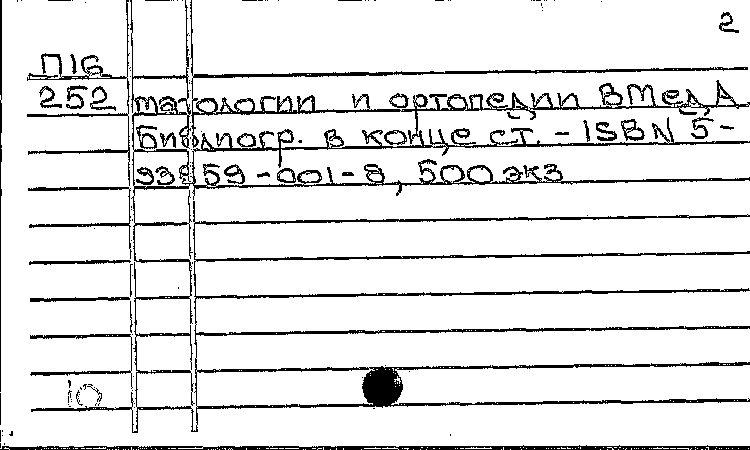 2
П16
252 матологии и ортопедии ВМедА
Библиогр. в конце ст. - ISBN 5-
93959-001-8, 500 экз
10